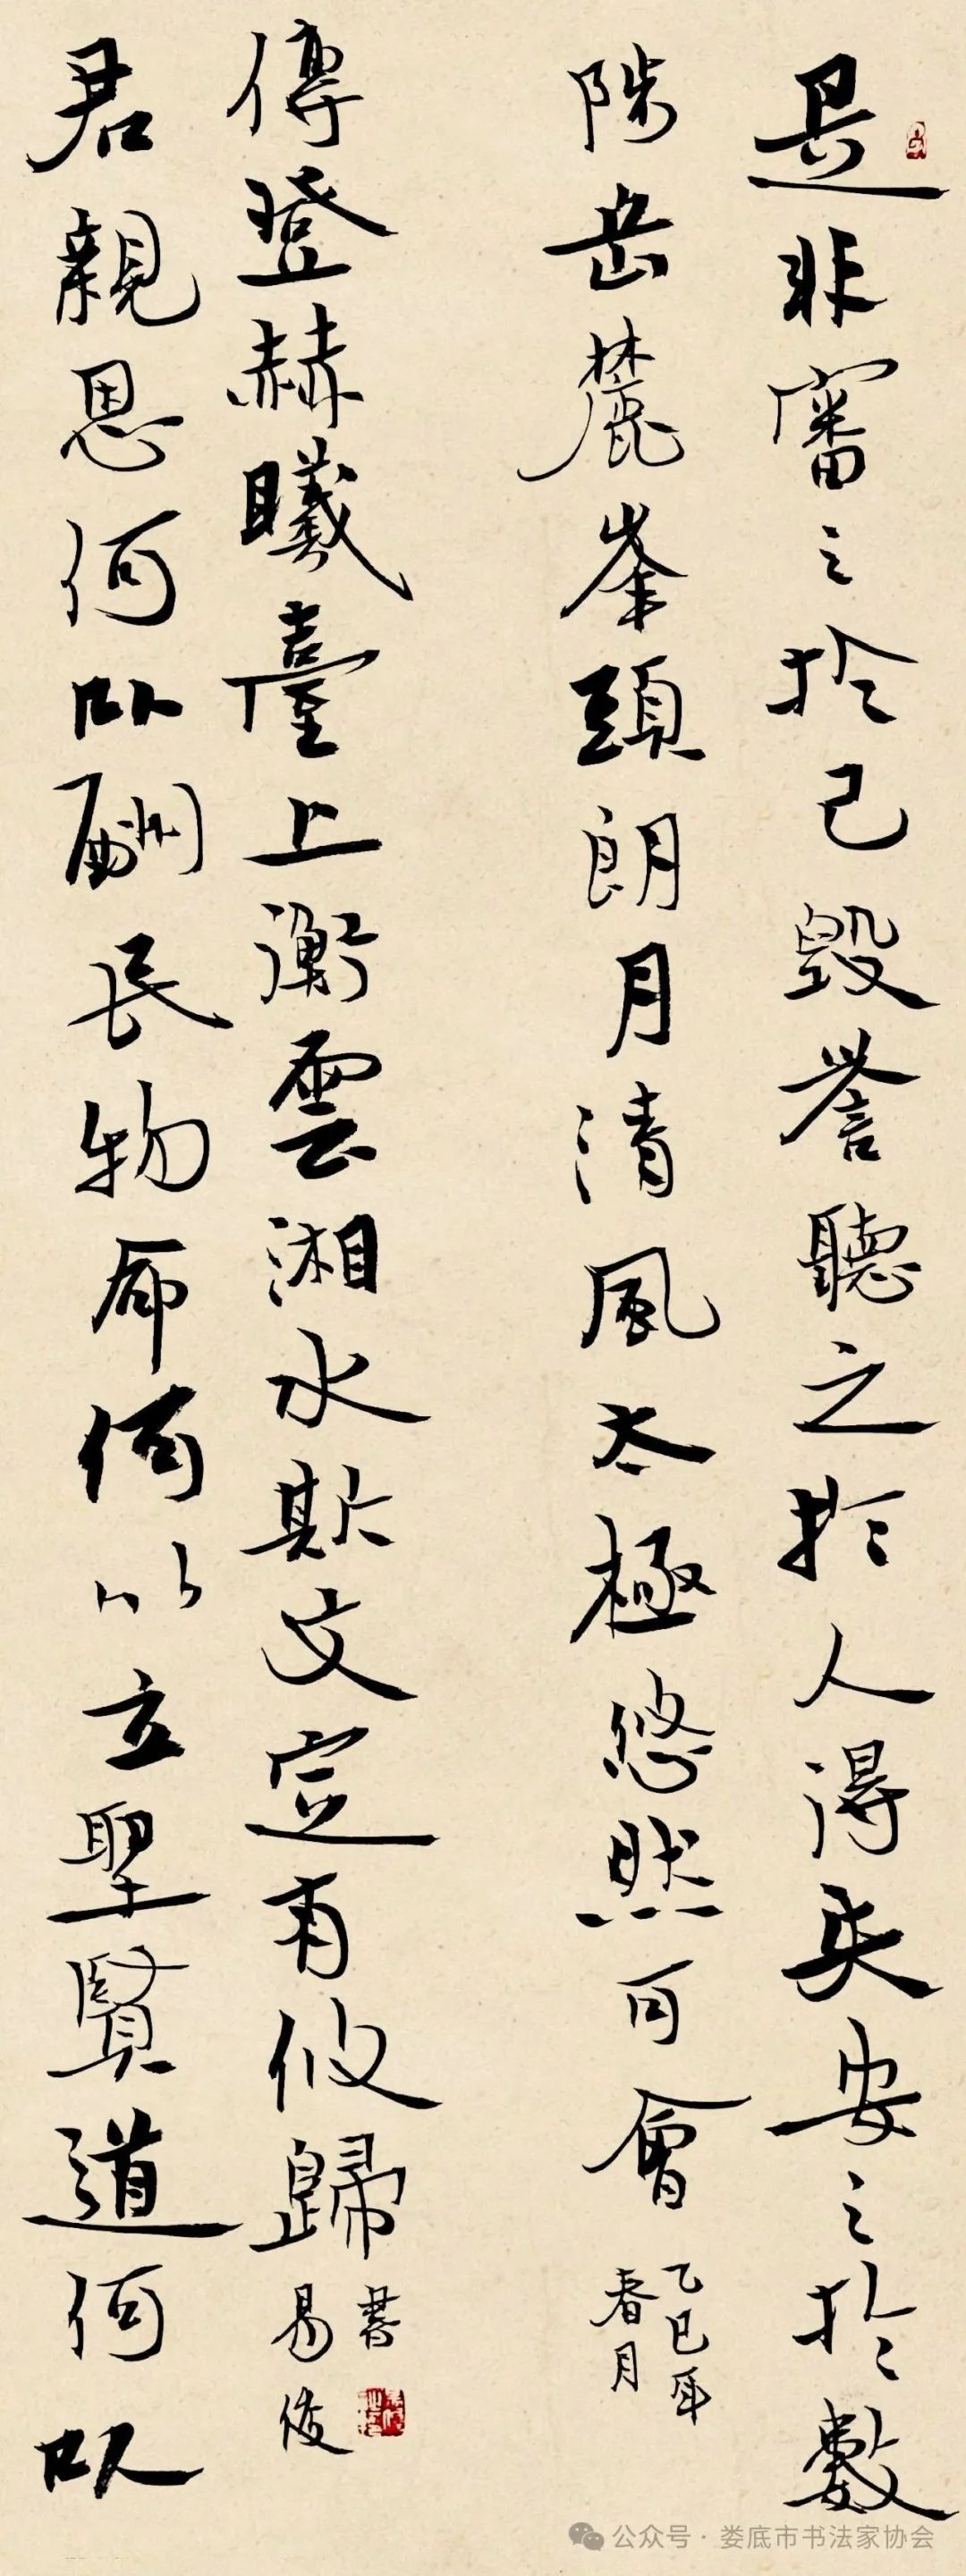 是非審之於己毀譽聽之於人得失安之於數
陟岳麓峯頭朗月清風太極悠然可會
乙巳年
春月
君親恩何以酬民物命何以立聖賢道何以
傳登赫曦臺上衡雲湘水斯文定有攸歸
易俊
書
公众号·娄底市书法家协会